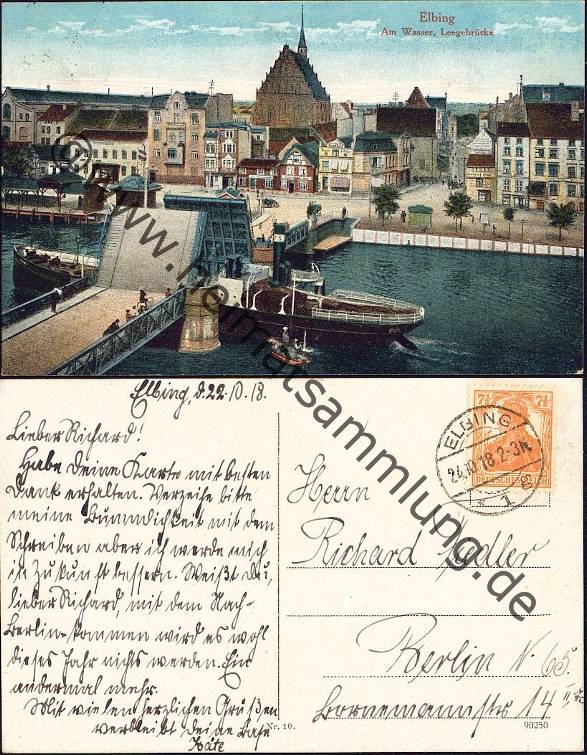 Elbing
Am Wasser, Leegebrücke
© www.heimatsammlung.de
Elbing, d. 22.10.18.
Lieber Richard!
Habe Deine Karte mit besten
Dank erhalten. Verzeihe bitte
meine Bummlichkeit mit dem
Schreiben aber ich werde mich
in Zukunft bessern. Weißt Du,
lieber Richard, mit dem Nach-
Berlin-kommen wird es wohl
dieses Jahr nichts werden. Ein
andermal mehr.
Mit vielen herzlichen Grüßen
verbleibt, deine Base
Käte
Nr. 10.
7½ 7½
DEUTSCHES REICH
ELBING
24.10.18.2-3N.
* 1
Herrn
Richard
Berlin N. 65.
Bornemannstr 14
90250